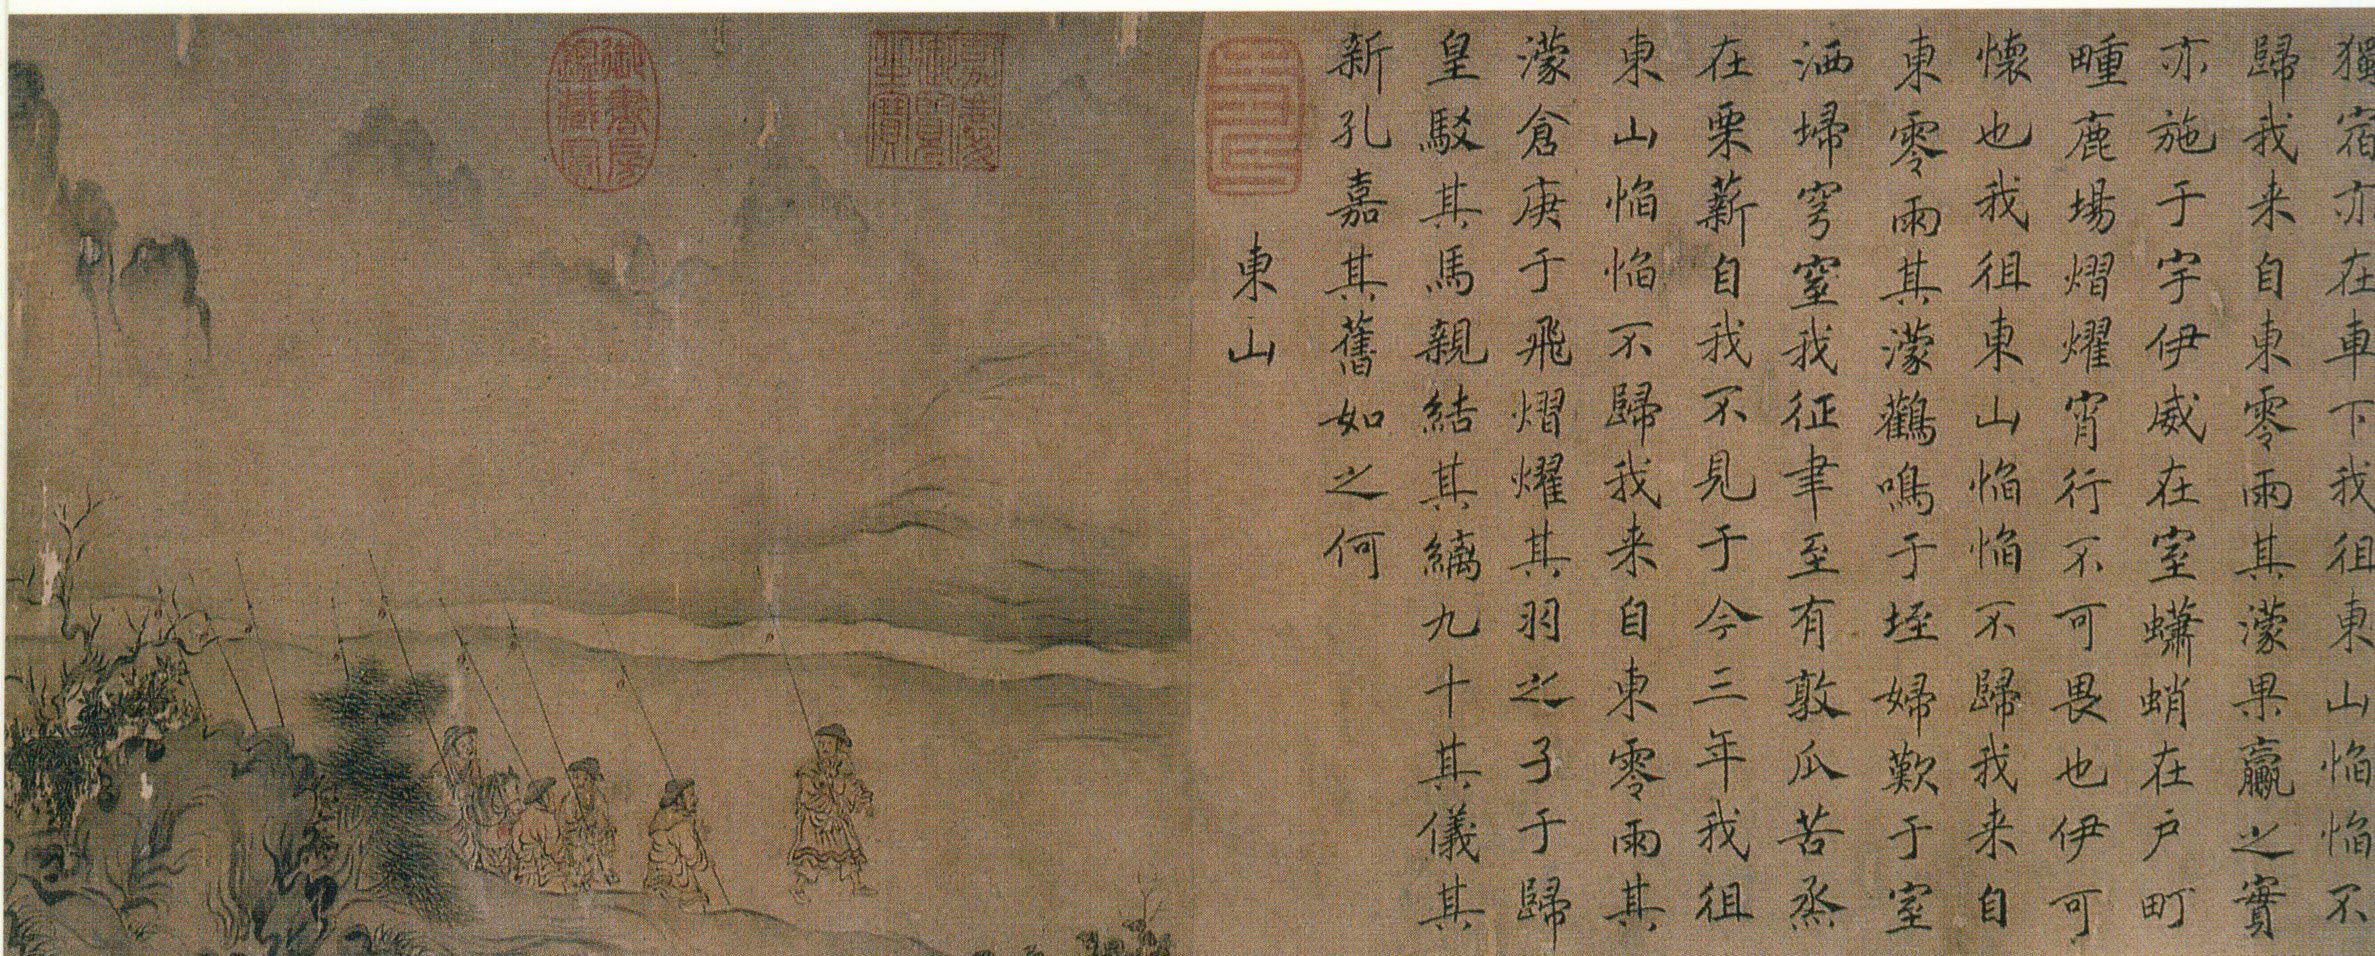 獨宿亦在車下我徂東山慆慆不
歸我来自東零雨其濛果臝之實
亦施于宇伊威在室蠨蛸在戶町
畽鹿場熠燿宵行不可畏也伊可
懷也我徂東山慆慆不歸我来自
東零雨其濛鸛鳴于垤婦歎于室
洒埽穹窒我征聿至有敦瓜苦烝
在栗薪自我不見于今三年我徂
東山慆慆不歸我来自東零雨其
濛倉庚于飛熠燿其羽之子于歸
皇駁其馬親結其縭九十其儀其
新孔嘉其舊如之何
東山
嘉慶御覽之寶
御書房鑑藏寶